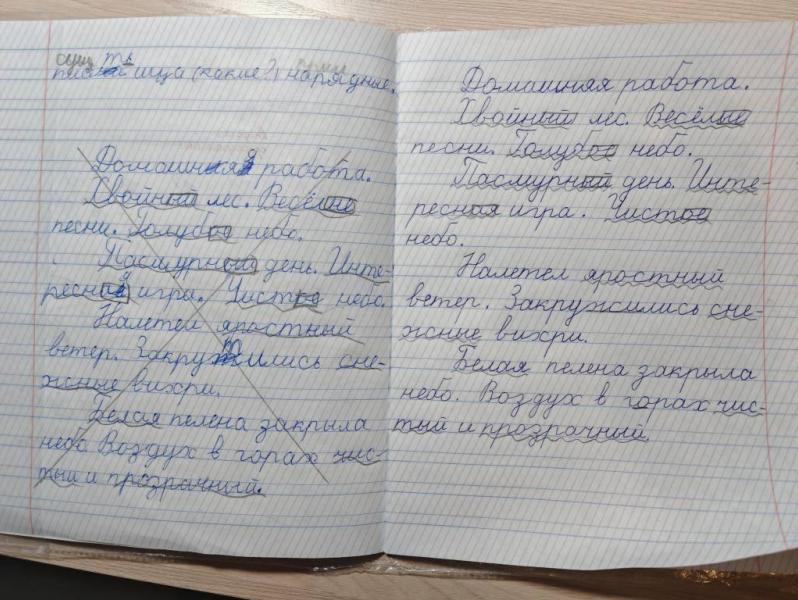 сущ.
ица (какие?) нарядные.
Домашняя работа.
Хвойный лес. Весёлые
песни. Голубое небо.
Пасмурный день. Инте-
ресная игра. Чистое небо.
Налетел яростный
ветер. Закружились сне-
жные вихри.
Белая пелена закрыла
небо Воздух в горах чис-
тый и прозрачный.
Домашняя работа.
Хвойный лес. Весёлые
песни. Голубое небо.
Пасмурный день. Инте-
ресная игра. Чистое
небо.
Налетел яростный
ветер. Закружились сне-
жные вихри.
Белая пелена закрыла
небо. Воздух в горах чис-
тый и прозрачный.